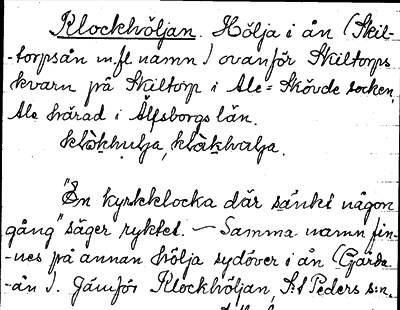 Klockhöljan. Hölja i ån (Skil-
-torpsån m.fl. namn) ovanför Skiltorps
kvarn på Skiltorp i Ale=Skövde socken,
Ale härad i Älfsborgs län.
klòkhulja, klòkhvalja.
"En kyrkklocka där sänkt någon
gång" säger ryktet. — Samma namn fin-
-nes på annan hölja sydöver i ån (Gärda
-ån). Jämför Klockhöljan, S:t Peders s:n,